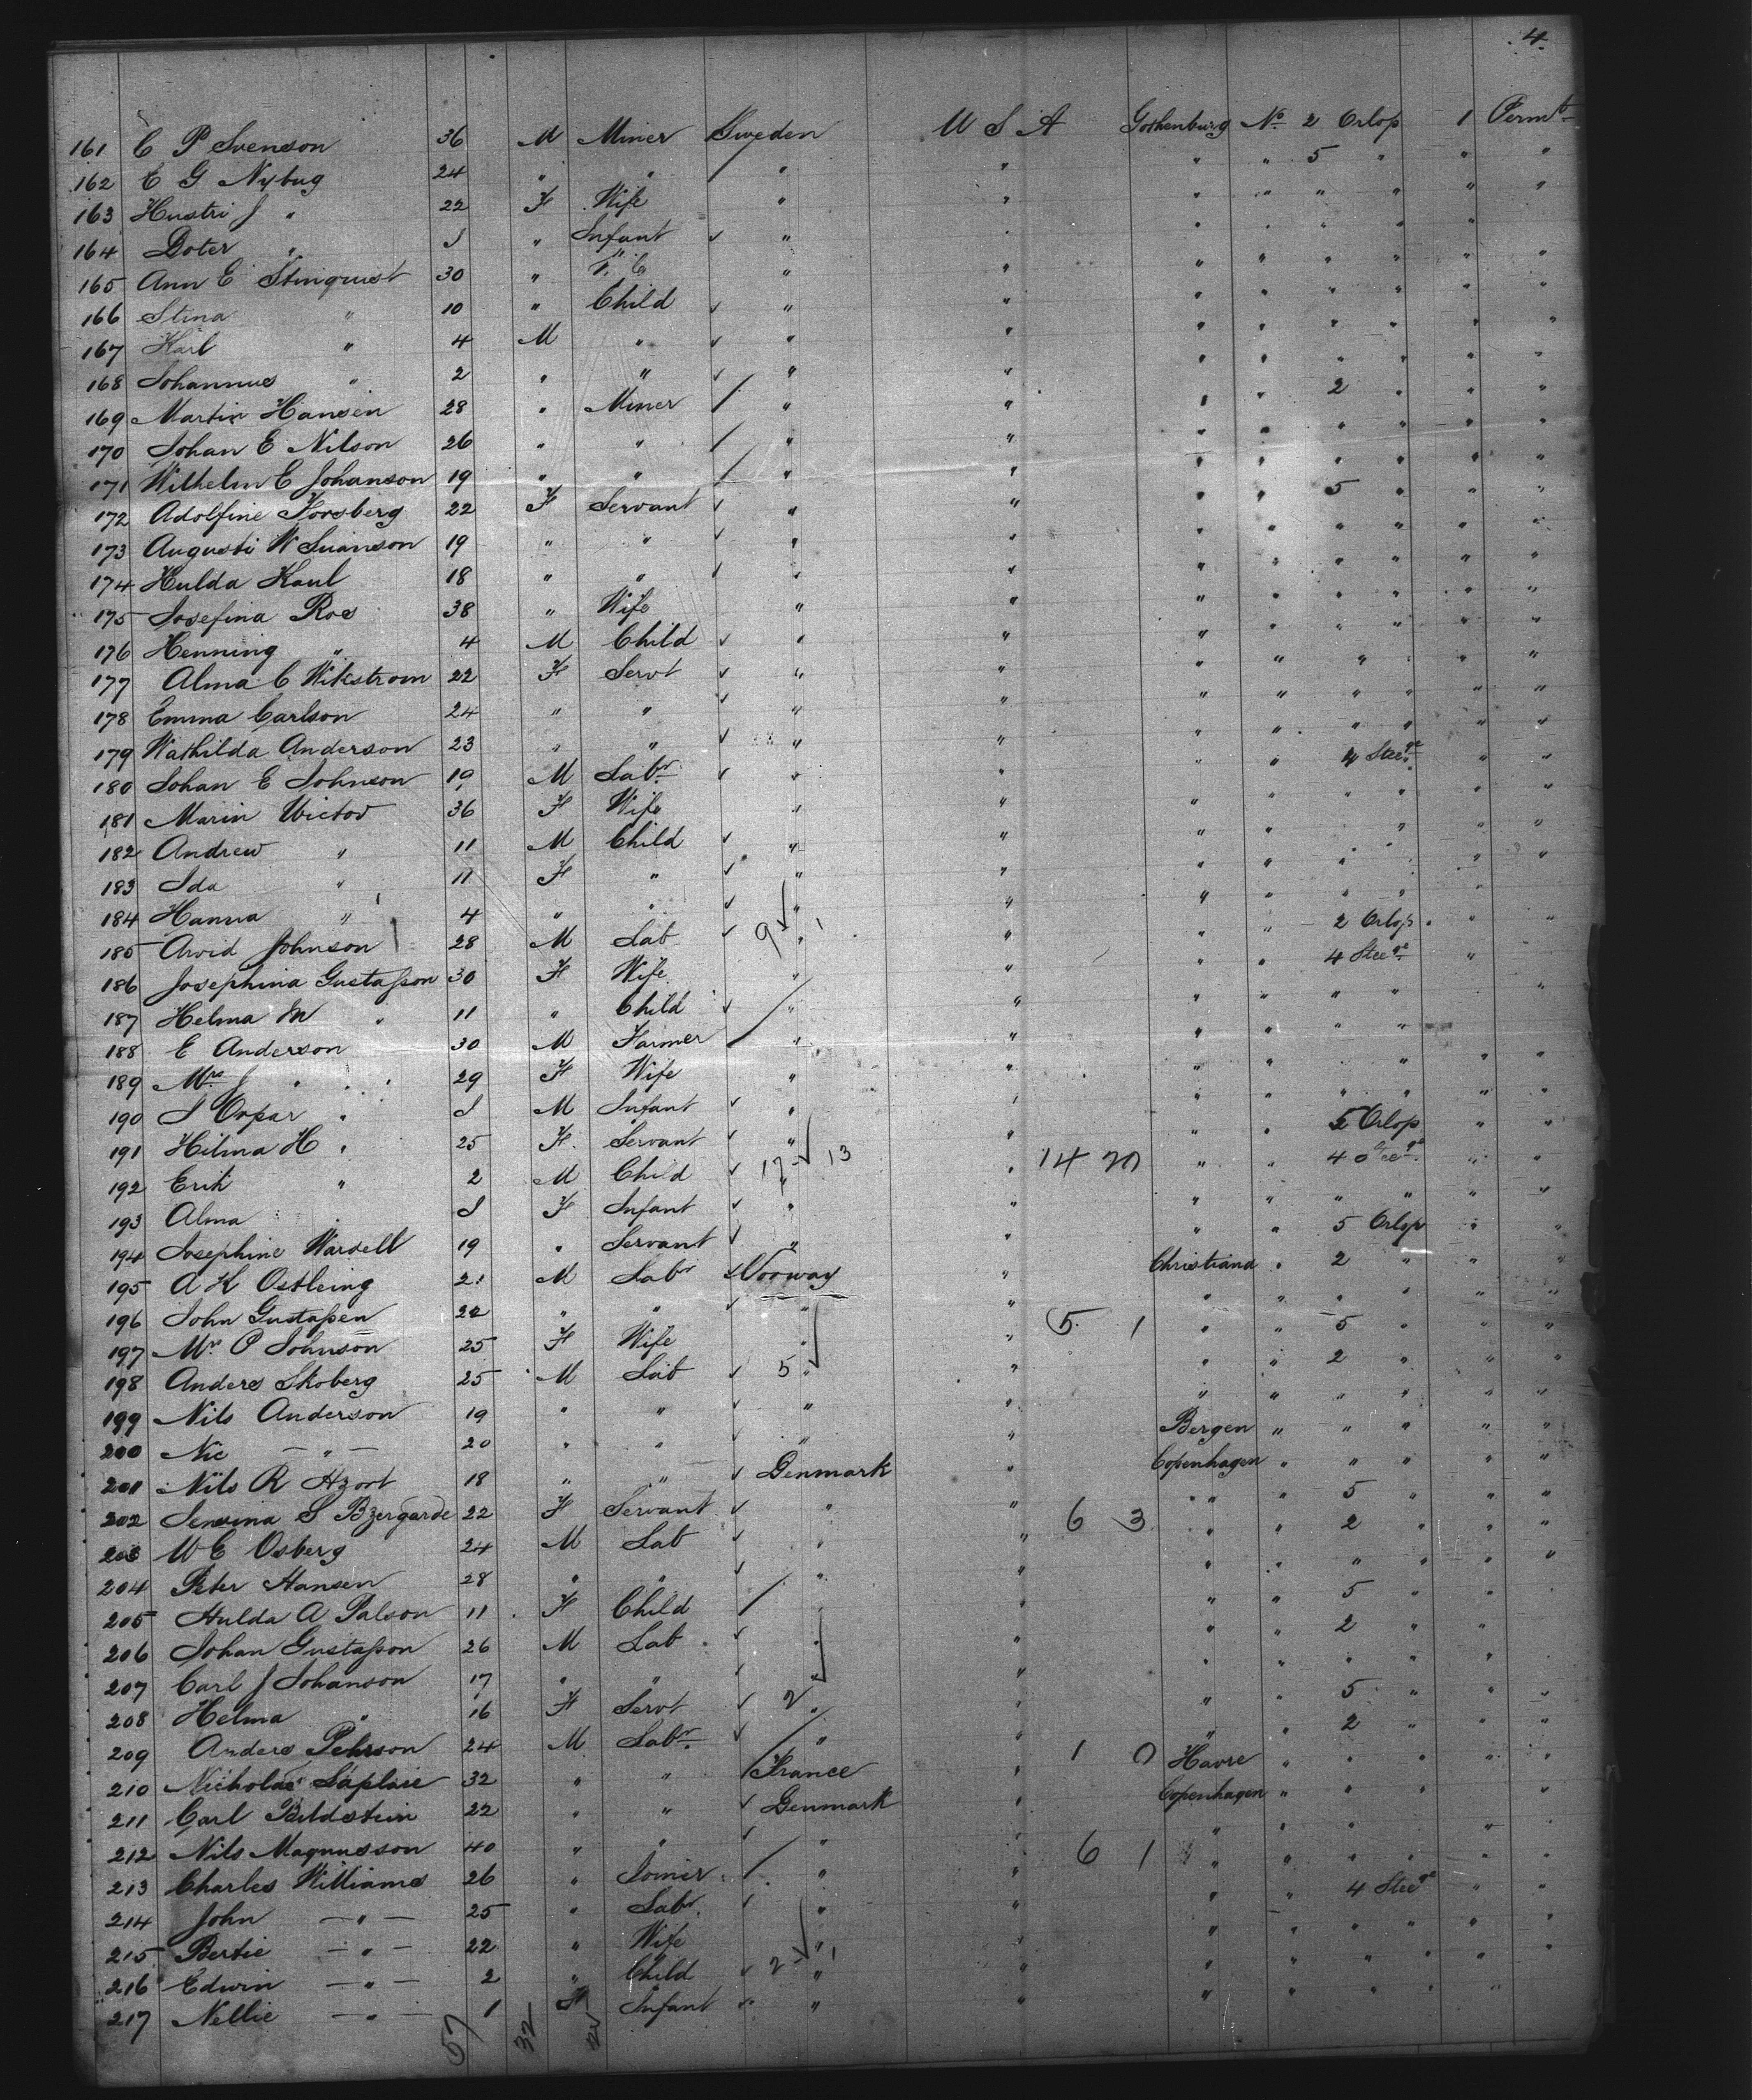 4.
161 C P Svenson 36 M Miner Sweden U S A Gothenburg No. 2 Orlop 1 Permt
162 E G Nybug 24 " " " " " " 5 " " "
163 Hustri J " 22 F Wife " " " " " " " "
164 Doter " I " Infant " " " " " " "
165 Ann E Stinquist 30 " " " " " " " " "
166 Stina " 10 " Child " " " " " " " "
167 Karl " 4 M " " " " " " " " "
168 Johannus " 2 " " " " " " " " " "
169 Martin Hansen 28 " Miner " " " " 2 " " "
170 Johan E Nilson 26 " " " " " " " " " "
171 Wilhelm E Johanson 19 " " " " " " " " " "
172 Adolfine Forsberg 22 F Servant " " " " 5 " " "
173 Augusti W Suanson 19 " " " " " " " " " "
174 Hulda Kaul 18 " " " " " " " " " "
175 Josefina Ros 38 " Wife " " " " " " " "
176 Henning " 4 M Child " " " " " " " "
177 Alma C Wikstrom 22 F Servt " " " " " " " "
178 Emma Carlson 24 " " " " " " " " " "
179 Wathilda Anderson 23 " " " " " " " " " "
180 Johan E Johnson 19 M Labr " " " " 4 Steege " "
181 Marin Wictor 36 F Wife " " " " " " " "
182 Andrew " 11 M Child " " " " " " "
183 Ida " 11 F " " " " " " " " "
184 Hanna " 4 " " " " " " " " "
185 Arvid Johnson 28 M Lab 9 " 1 " " " 2 Orlop " "
186 Josephina Gustafson 30 F Wife " " " " 4 Steege "
187 Helma M " 11 " Child " " " " " " "
188 E Anderson 30 M Farmer " " " " " "
189 Mrs J " 29 F Wife " " " " " " "
190 J Orpar " I M Infant " " " " " " " "
191 Hilma H " 25 F Servant " " " " 5 Orlop " "
192 Erik " 2 M Child 17 " 13 " 14 20 " " 4 Steege " "
193 Alma I F Infant " " " " " " " "
194 Josephine Warsell 19 " Servant " " " 5 Orlop " "
195 A K Ostleing 21 M Labr Norway " Christiand " 2 " " "
196 John Gustafsen 22 " " " " " " " " " "
197 Mrs P Johnson 25 F Wife " " 5 1 " " 5 " " "
198 Anders Skoberg 25 M Lab 5 " " " " 2 " " "
199 Nils Anderson 19 " " " " " " " " " "
200 Nic " 20 " " " " Bergen " " " " "
201 Nils R Hzort 18 " " Denmark " Copenhagen " " " " "
202 S Bzergarde 22 F Servant " " 6 3 " " 5 " " "
203 W E Osberg 24 M Lab " " " " 2 " " "
204 Peter Hansen 28 " " " " " " " " " "
205 Hulda A Palson 11 F Child " " " 5 " "
206 Johan Gustafson 26 M Lab " " " " 2 " "
207 Carl J Johanson 17 " " " " " " " " "
208 Helma " 16 F Servt 2 " " " " 5 " " "
209 Anders Pehrson 24 M Labr " " " " 2 " " "
210 Nicholas Laplaie 32 " " France " 1 0 Havre " " " " "
211 Carl Bildstein 22 " " Denmark " Copenhagen " " " " "
212 Nils Magnusson 40 " " " " " " " "
213 Charles Williams 26 " Joiner " " 6 1 " " " " " "
214 John " 25 " Labr " " " " 4 Steege " "
215 Bertie " 22 " Wife " " " " " " " "
216 Edwin " 2 " Child 2 " 1 " " " " " " "
217 Nellie " 1 F Infant " " " " " " "
57 32